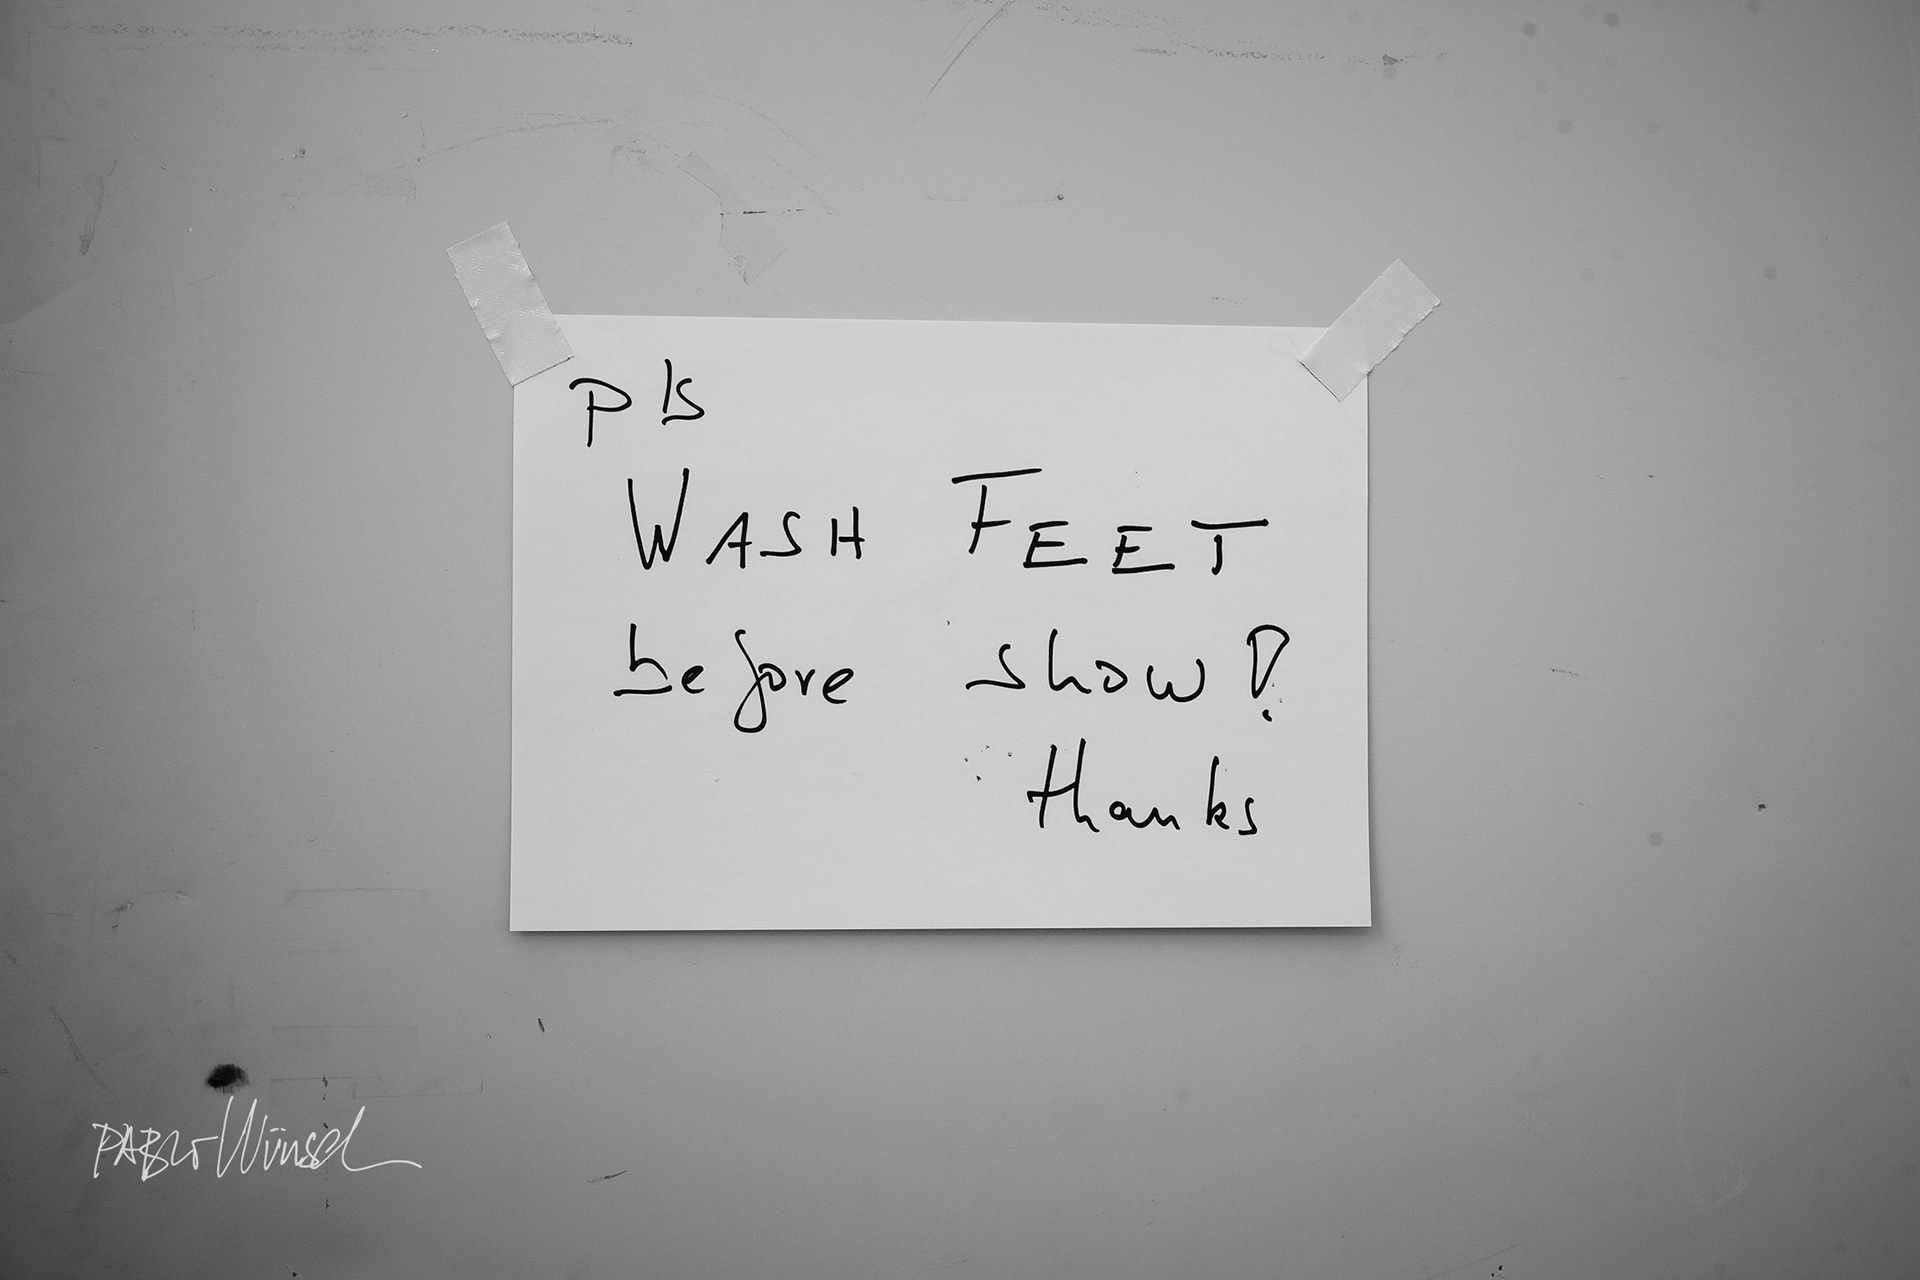 pls
WASH FEET
before show!
thanks
PABLO Wünsch